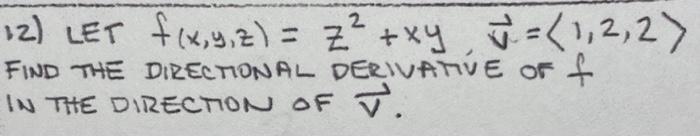 12) LET f(x,y,z) = z² + xy, v⃗ = ⟨1,2,2⟩
FIND THE DIRECTIONAL DERIVATIVE OF f
IN THE DIRECTION OF v⃗.